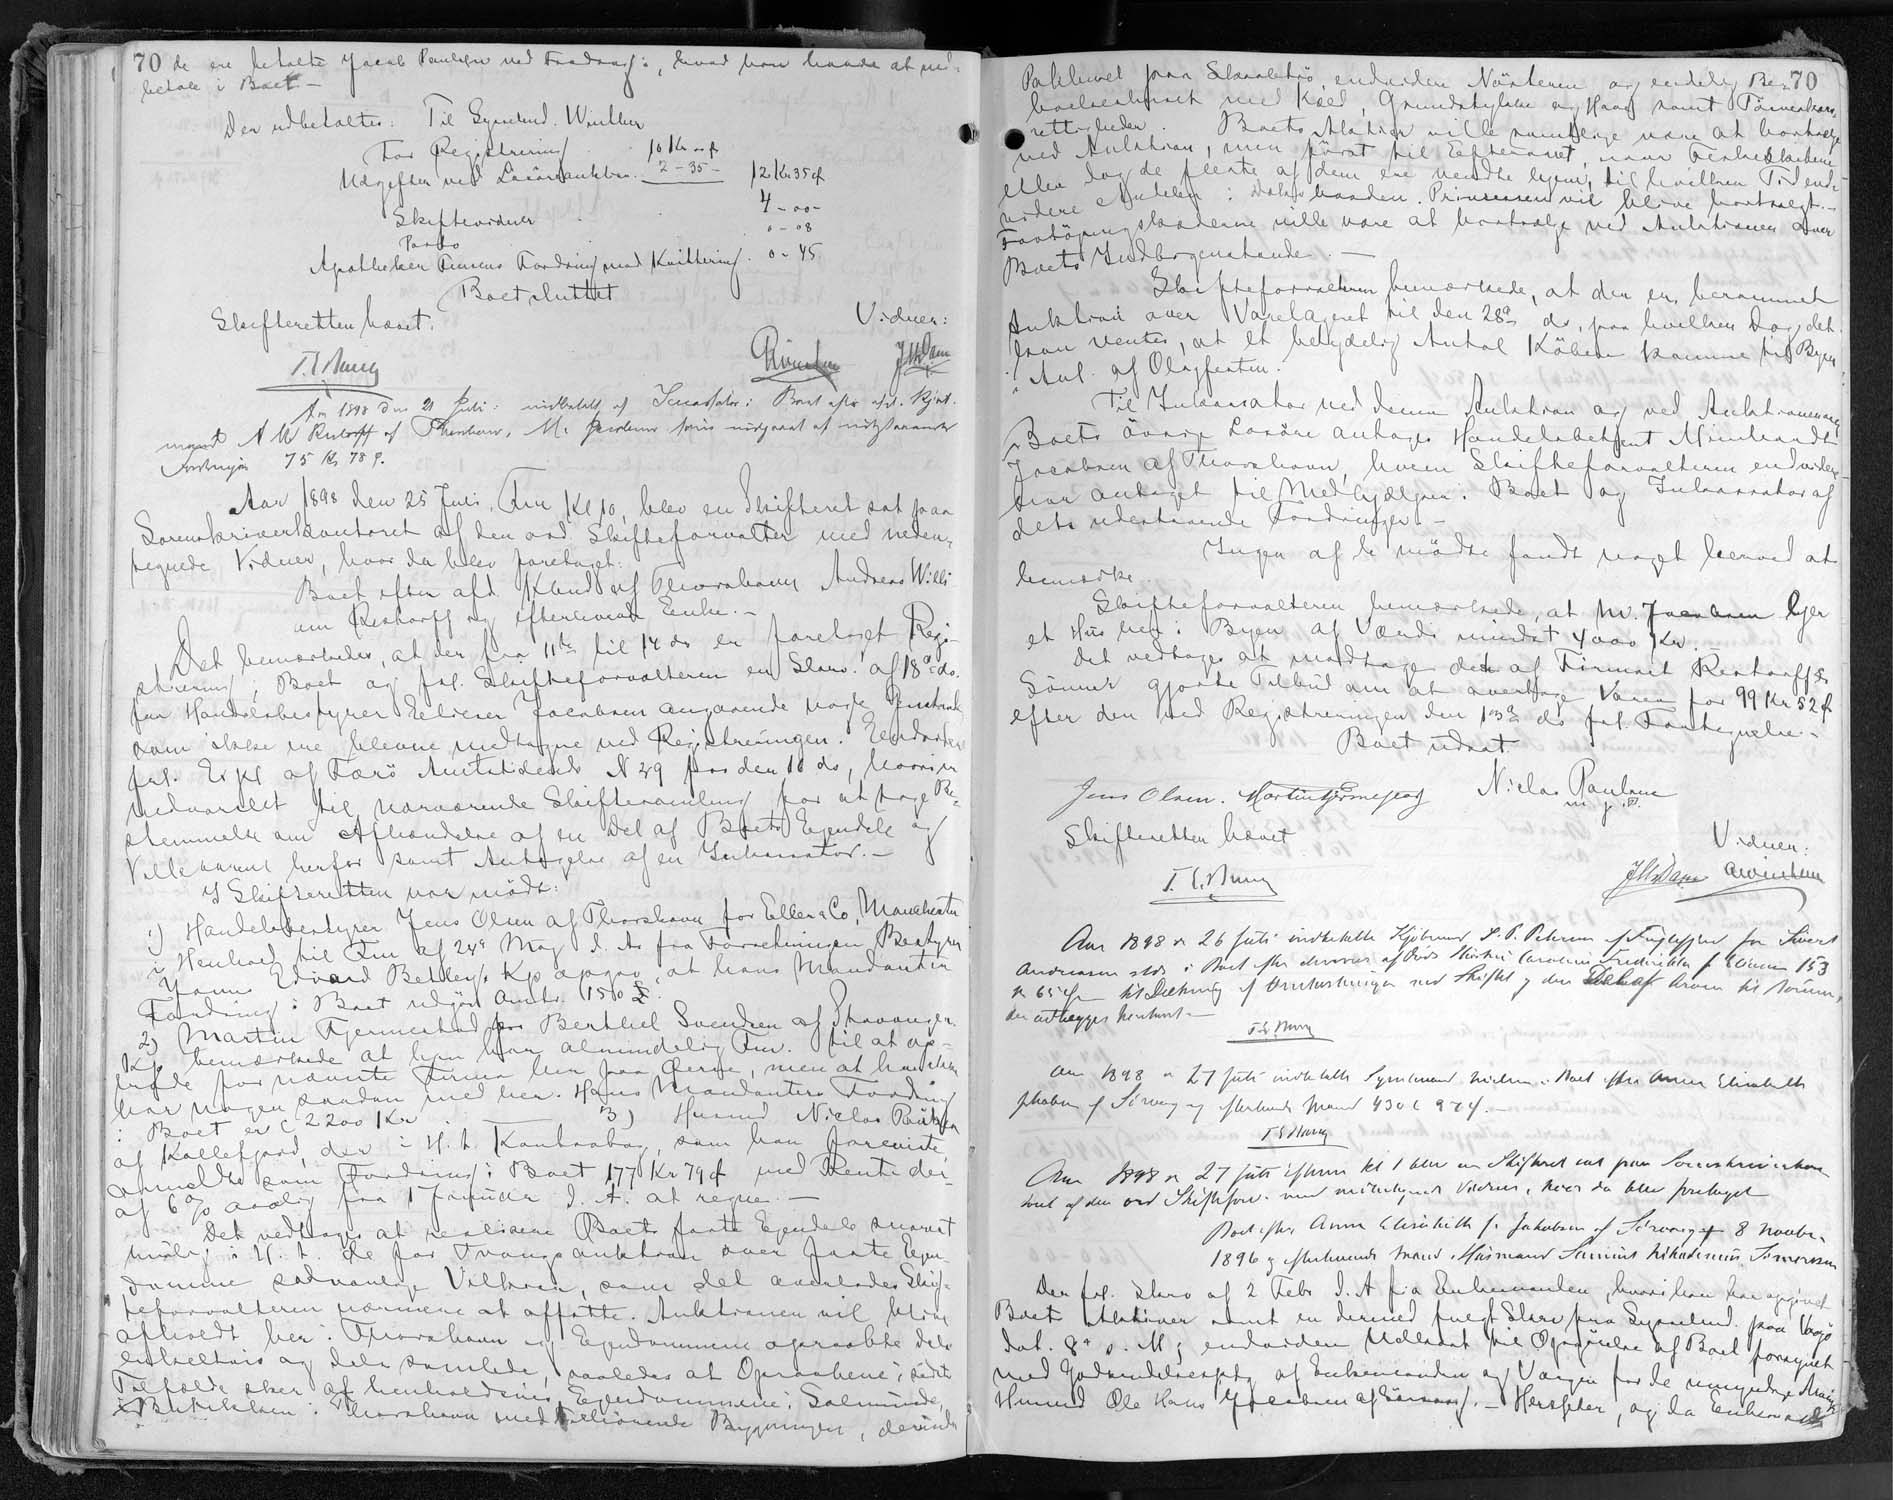 70 de ere betalte Jacob Poulsen ved Fradrag i, hvad han havde at ind-
betale i Boet –
Der udbetaltes: Til Sysselmd. Winther
For Registrering 10 Kr
Udgifter ved Løsøreauktion 2 – 35 – 12 Kr 35 Ø
Skiftevidner 4 – 00 –
Porto 0 – 08
Apotheker Fordring mod Kvittering 0 – 45
Boet sluttet
Skifteretten hævet.
Vidner:
JHDam
Aar 1898 den 21 Juli indbetalt af Incassator i Boet efter afd. Kjøb-
mand A W Restorff af Thorshavn, M. Jacobsen
Fordringer 75 Kr 78 Ø.
Aar 1898 den 25 Juli, Fm Kl 10, blev en Skifteret sat paa
Sorenskriverkontoret af den ord. Skifteforvalter med neden-
tegnede Vidner, hvor da blev foretaget:
Boet efter afd. Kbmd af Thorshavn Andreas Willi-
am Restorff og efterlevende Enke. –
Det bemærkedes, at der fra 11te til 14 ds er foretaget Regi-
strering i Boet og frl. Skifteforvalteren en Skriv. af 18de ds.
fra Handelsbestyrer Eliezer Jacobsen angaaende nogle Genstande
som ikke ere blevne medtagne ved Registreringen. Endvidere
frl. Expl af Færø Amtstidende N 29 for den 16 ds, hvori er
indvarslet til nærværende Skiftesamling for at tage Be-
stemmelse om Afhændelse af en Del af Boets Ejendele og
Vilkaarene herfor samt Antagelse af en Inkassator. –
I Skifteretten var mødt:
1) Handelsbestyrer Jens Olsen af Thorshavn for Eller & Co, Manchester
i Henhold til Fm af 24de Maj d. A. fra Forretningens Bestyrer
Edvard Kp opgav, at hans Mandantens
Fordring i Boet udgør omtr. 150 £.
2) Martin Tjermestad for Berthel Svendsen af Stavanger.
Kp bemærkede at han har almindelig Fm. til at op-
træde for nævnte Firma her paa Øerne, men at han ikke
har nogen saadan med her. Hans Mandantens Fordring
i Boet er c 2200 Kr. 3) Husmd Niclas Poulsen
af Kollefjord, der i H. t. Kontrabog, som han foreviste,
anmeldte som Fordring i Boet 177 Kr 79 Ø med Rente der-
af 6% aarlig fra 1 Januar d. A. at regne. –
Det vedtages at realisere Boets faste Ejendele snarest
mulig i H. t. de for Tvangsauktion over faste Ejen-
domme sædvanlige Vilkaar, som det overlodes Skif-
teforvalteren nærmere at affatte. Auktionen vil blive
afholdt her i Thorshavn og Ejendommene opraabte dels
enkeltvis og dels samlede, saaledes at Opraabene i sidste
Tilfælde sker af henholdsvis Ejendommene i Salminde,
Butikken i Thorshavn med tilhørende Bygninger, derunder
Pakhuset paa Skaaletrø, endvidere Nøsteren og endelig Be- 70
boelseshuset med Kæd, Grundstykke og Have samt Tørveskærs-
rettigheder. Boets Aktier ville samtlige være at bortsælge
ved Auktion, men først til Efteraaret, naar Fiskeskibene
eller dog de fleste af dem ere vendte hjem, til hvilken Tid end-
videre Andelen i Prinsessen vil blive bortsolgt. –
Fortøjningskæderne ville være at bortsælge ved Auktionen over
Boets Indbogenstande. –
Skifteforvalteren bemærkede, at der er berammet
Auktion over Varelageret til den 28de ds, paa hvilken Dag det
kan ventes, at et betydelig Antal Købere komme til Byen
i Anl. af Olagfesten.
Til Inkassator ved denne Auktion og ved Auktionerne over
Boets øvrige Løsøre antages Handelsbetjent Mimbrandt
Jacobsen af Thorshavn, hvem Skifteforvalteren endvidere
har antaget til Medhjælper i Boet og Inkassator af
dets udestaaende Fordringer. –
Ingen af de mødte fandt noget herved at
bemærke.
Skifteforvalteren bemærkede, at M. Jacobsen ejer
et Hus her i Byen af Værdi mindst 4000 Kr. –
Det vedtages at modtage det af Firmaet Restorff &
Sønner gjorte Tilbud om at overtage Varer for 99 Kr 52 Ø
efter den ved Registreringen den 13de ds frl. Fortegnelse. –
Boet udsat.
Jens Olsen. Martin Tjermestad Niclas Poulsen
m. f. P.
Skifteretten hævet
Vidner:
JHDam
Aar 1898 d 26 Juli indbetalte Kjøbmd S. P. Petersen af Fuglefjord for Sivert
Andreasen i Boet efter 153
Kr 65 Øre til Dækning af Omkostninger ved Skiftet
der udlægges
Aar 1898 d 27 Juli indbetalte Sysselmand Nielsen i Boet efter Anna Elisabeth
Jakobsen af Sørvaag og efterlevende Mand 430 97 Ø. –
Aar 1898 d 27 Juli Efterm kl 1 blev en Skifteret sat paa Sorenskriverkon-
toret af den ord Skiftefor. med undertegnede Vidner, hvor da blev foretaget
Boet efter Anna Elisabeth f. Jakobsen af Sørvaag † 8 Novbr.
1896 og efterlevende Mand Husmand Nikodemus Simonsen
Der frl. Skriv af 2 Febr d. A fra Enkemanden, hvori han har opgivet
Boets Aktiver samt en dermed fulgt Skriv fra Sysselmd. paa Vaagø
dat. 8de s. M; endvidere Udkast til Opgørelse af Boet forsynet
med Godkendelsespaategn. af Enkemanden og Værgen for de umyndige Arvinger
Husmd Ole Hans Jacobsen af Sørvaag. – Herefter, og da Enkemanden